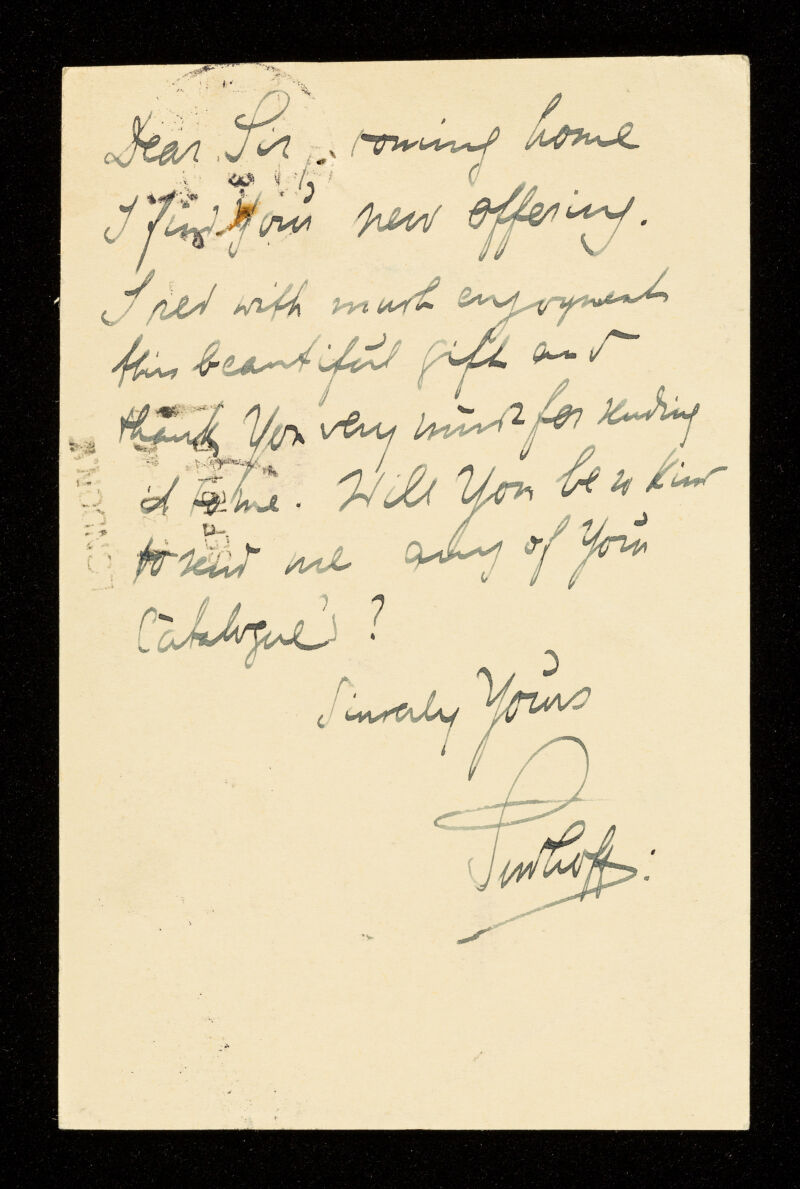 Dear Sir, coming home
I find Your new offering.
I red with much enjoyment
this beautiful gift and
thank You very much for sending
it to me. Will You be so kind
to send me any of Your
Catalogue's?
Sincerly Yours
LONDON.W
SEP 19